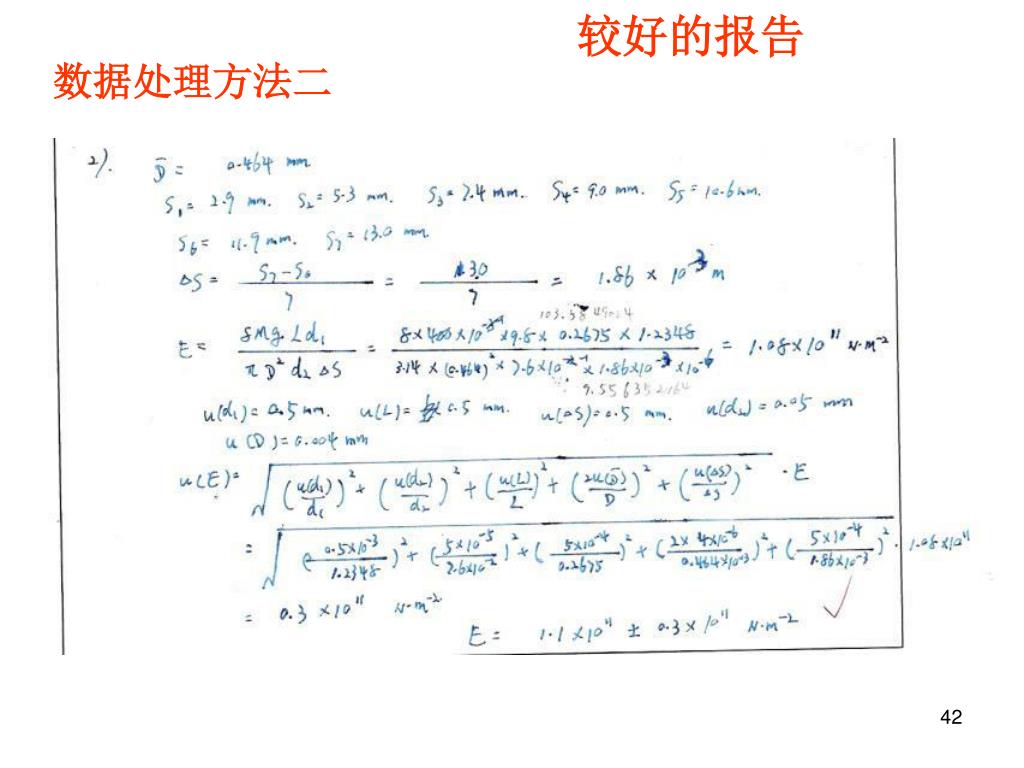 较好的报告
数据处理方法二
2). D̄ = 0.464 mm
S₁ = 2.9 mm. S₂ = 5.3 mm. S₃ = 7.4 mm. S₄ = 9.0 mm. S₅ = 10.6 mm.
S₆ = 11.9 mm. S₇ = 13.0 mm
ΔS = (S₇-S₀)/7 = 13.0/7 = 1.86 × 10⁻³ m
103.58
E = 8Mg·Ld₁/(πD̄²d₂ΔS) = = 1.08×10¹¹ N·m⁻²
9.55635
u(d₁) = 0.5 mm. u(L) = 0.5 mm. u(ΔS) = 0.5 mm. u(d₂) = 0.05 mm
u(D) = 0.004 mm
u(E) = √((u(d₁)/d₁)² + (u(d₂)/d₂)² + (u(L)/L)² + (2u(D̄)/D̄)² + (u(ΔS)/ΔS)²) · E
= √((0.5×10⁻³/1.2348)² + (5×10⁻⁵/7.6×10⁻²)² + (5×10⁻⁴/0.2675)² + (2×4×10⁻⁶/0.464×10⁻³)² + (5×10⁻⁴/1.86×10⁻³)²) · 1.08×10¹¹
= 0.3 ×10¹¹ N·m⁻²
E = 1.1×10¹¹ ± 0.3×10¹¹ N·m⁻²
42